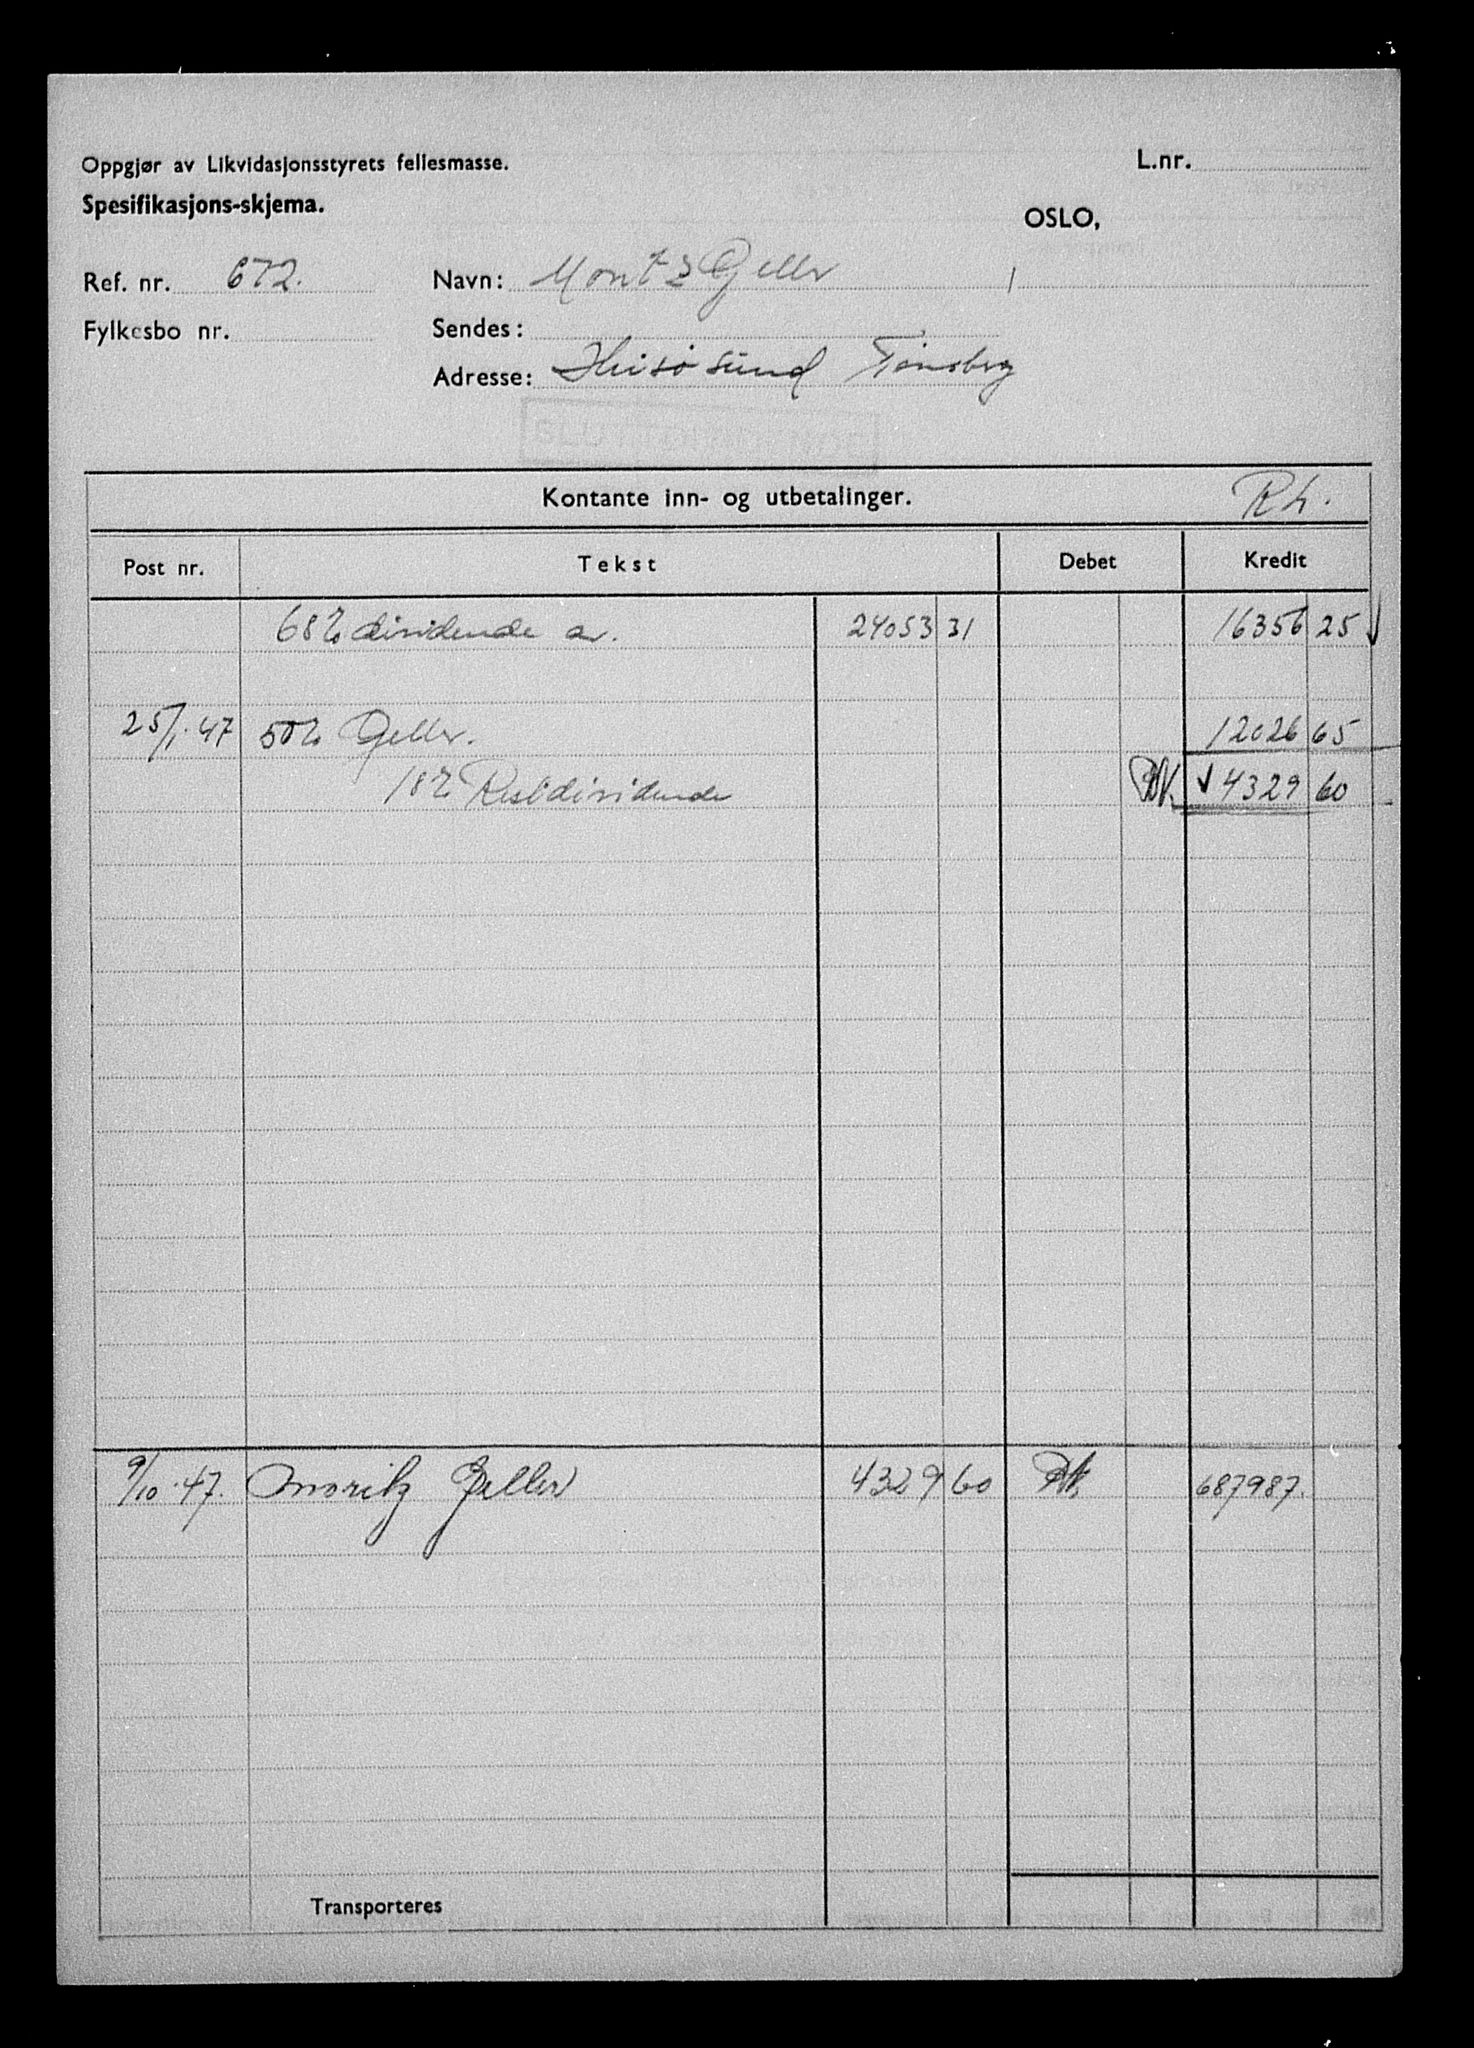 Oppgjør av Likvidasjonsstyrets fellesmasse.
L.nr.
Spesifikasjons-skjema.
OSLO,
Ref. nr. 672.
Navn: Moritz Geller
Fylkesbo nr.
Sendes:
Adresse: Husøsund Tønsberg
Kontante inn- og utbetalinger.
Post nr. Tekst Debet Kredit
68% dividende av. 24053 31 16356 25
25/1.47 50% Geller. 12026 65
18% Restdividende 4329 60
9/10.47. Moritz Geller 4329 60 687987.
Transporteres